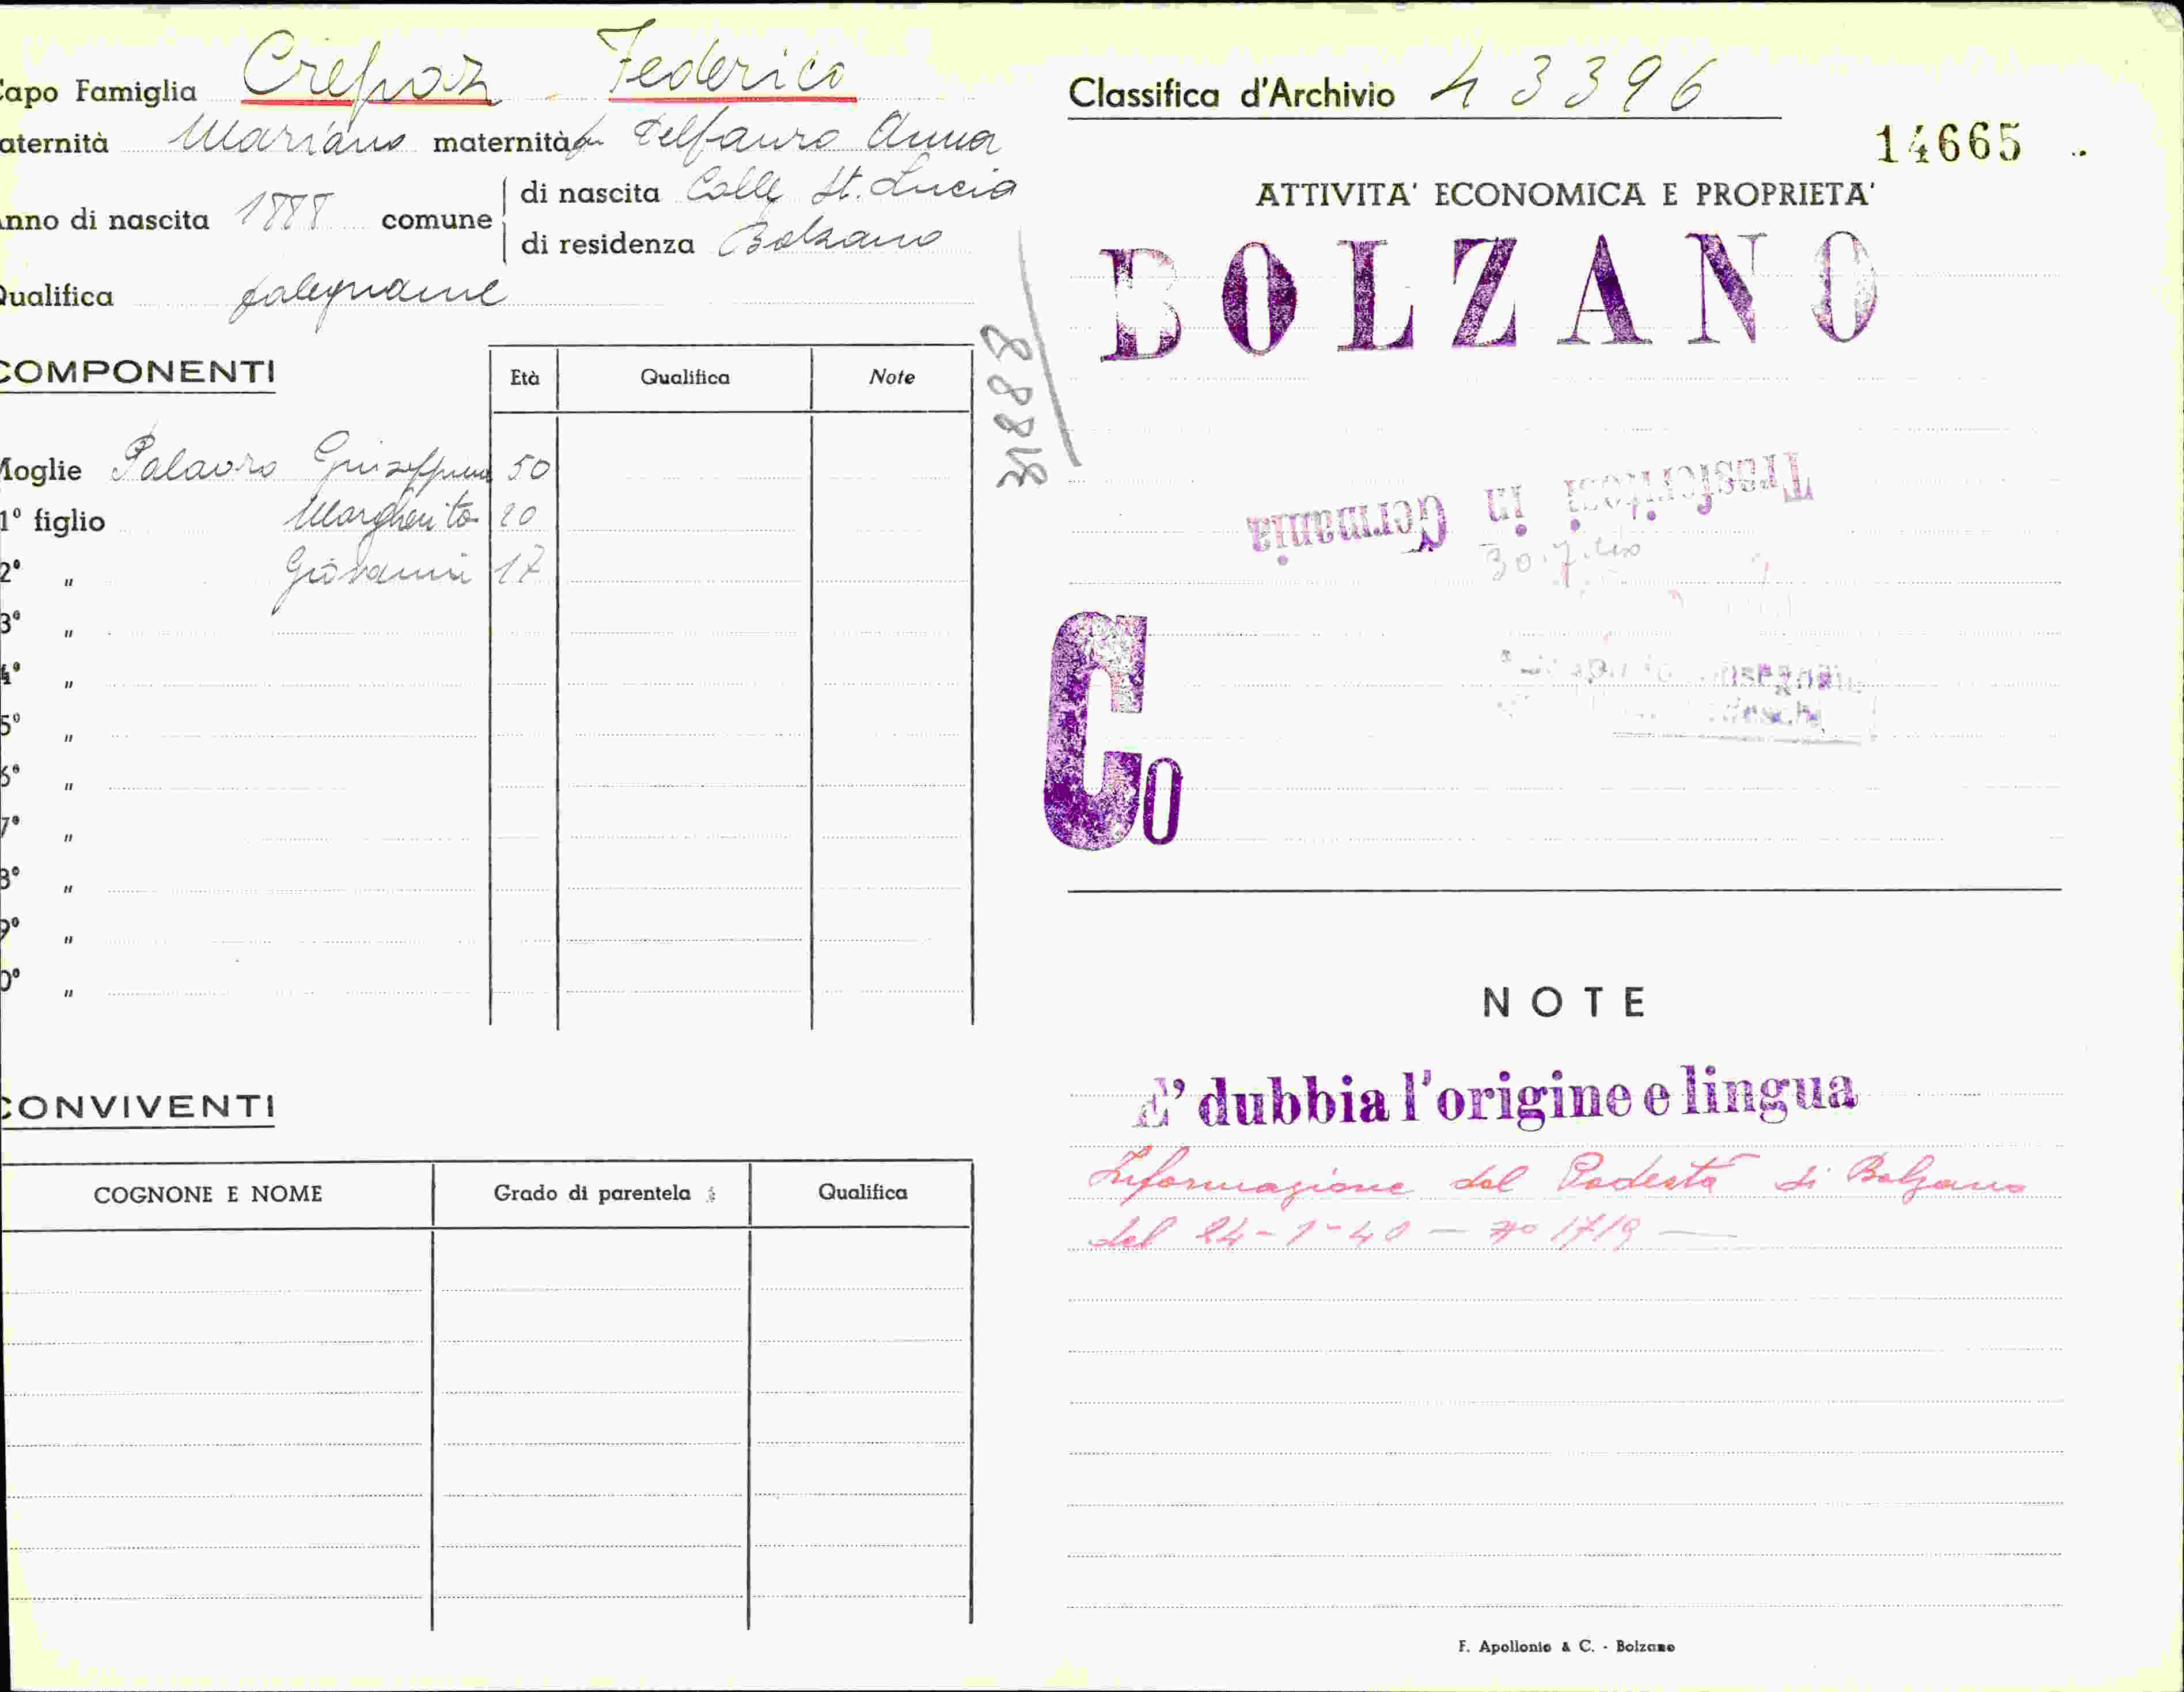 Capo Famiglia Crepaz Federico
aternità Mariano maternità fu Delfauro Anna
nno di nascita 1888 comune di nascita Colle St. Lucia
di residenza Bolzano
Qualifica falegname
COMPONENTI Età Qualifica Note
Moglie Palavro Giuseppina 50
1° figlio Margherita 20
2° " Giovanni 17
3° "
4° "
5° "
6° "
7° "
8° "
9° "
0° "
CONVIVENTI
COGNONE E NOME Grado di parentela Qualifica
8888
Classifica d'Archivio 43396
14665
ATTIVITA' ECONOMICA E PROPRIETA'
BOLZANO
Trasferitosi in Germania
30.7.
Co
NOTE
E' dubbia l'origine e lingua
Informazione del Podestà di Bolzano
del 24-1-40 - n° 1719 -
F. Apollonio & C. - Bolzano